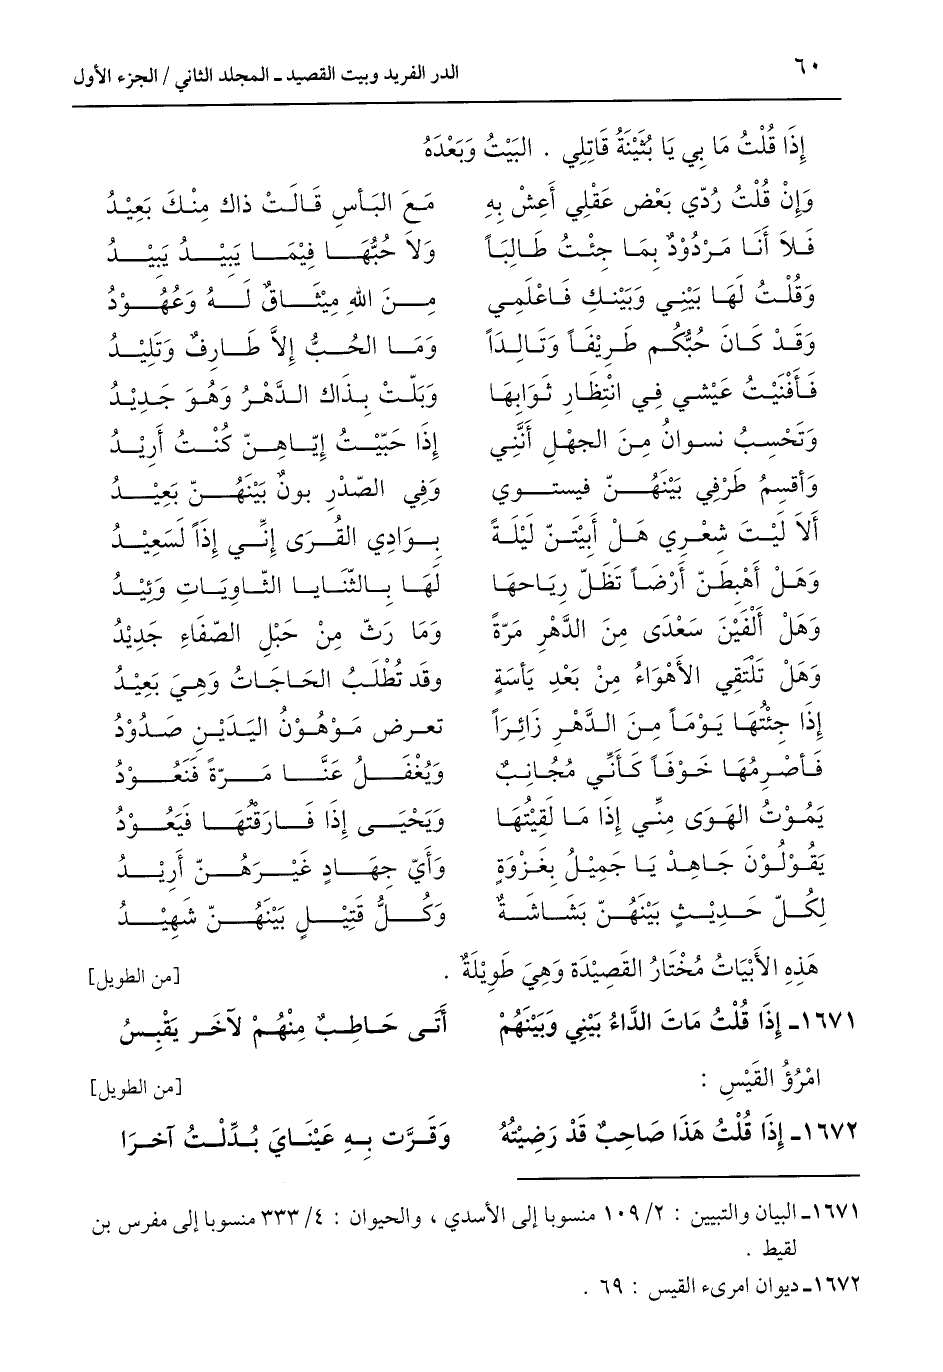 ٦٠ الدر الفريد وبيت القصيد ـ المجلد الثاني / الجزء الأول
إِذَا قُلْتُ مَا بِي يَا بُثَيْنَةُ قَاتِلِي . البَيْتُ وَبَعْدَهُ
وَإِنْ قُلْتُ رُدِّي بَعْضَ عَقْلِي أَعِشْ بِهِ مَعَ النَّاسِ قَالَتْ ذَاكَ مِنْكَ بَعِيْدُ
فَلاَ أَنَا مَرْدُوْدٌ بِمَا جِئْتُ طَالِبَاً وَلاَ حُبُّهَا فِيْمَا يَبِيْدُ يَبِيْدُ
وَقُلْتُ لَهَا بَيْنِي وَبَيْنِكِ فَاعْلَمِي مِنَ اللهِ مِيْثَاقٌ لَهُ وَعُهُوْدُ
وَقَدْ كَانَ حُبُّكُم طَرِيْفَاً وَتَالِدَاً وَمَا الحُبُّ إِلاَّ طَارِفٌ وَتَلِيْدُ
فَأَفْنَيْتُ عَيْشِي فِي انْتِظَارِ ثَوَابِهَا وَبَلَّتْ بِذَاكَ الدَّهْرُ وَهُوَ جَدِيْدُ
وَتَحْسِبُ نسوانُ مِنَ الجهْلِ أَنَّنِي إِذَا جَيْتُ إِيَّاهِنَّ كُنْتُ أُرِيْدُ
وَأقسِمُ طَرْفِي بَيْنَهُنَّ فيستوي وَفِي الصَّدْرِ بونٌ بَيْنَهُنَّ بَعِيْدُ
أَلاَ لَيْتَ شعْرِي هَلْ أَبيْتَنَّ لَيْلَةً بِوَادِي القُرَى إِنِّي إِذَاً لَسَعِيْدُ
وَهَلْ أَهْبِطَنَّ أَرْضَاً تَظَلُّ رِيَاحهَا لَهَا بِالثَّنَايَا الثَّاوِيَاتِ وَئِيْدُ
وَهَلْ أَلْفَيَنْ سَعْدَى مِنَ الدَّهْرِ مَرَّةً وَمَا رَثَّ مِنْ حَبْلِ الصَّفَاءِ جَدِيْدُ
وَهَلْ تَلْتَقِي الأَهْوَاءُ مِنْ بَعْدِ يَأْسَةٍ وَقَد تُطْلَبُ الحَاجَاتُ وَهِيَ بَعِيدُ
إِذَا جِئْتُهَا يَوْمَاً مِنَ الدَّهْرِ زَائِرَاً تعرض مَوْهُوْنُ اليَدَيْنِ صَدُوْدُ
فَأَصْرِمُهَا خَوْفَاً كَأَنِّي مُجَانِبٌ وَيَغْفَلُ عَنَّا مَرَّةً فَنَعُوْدُ
يَمُوْتُ الهَوَى مِنِّي إِذَا مَا لَقِيْتُهَا وَيَحْيَى إِذَا فَارَقْتُهَا فَيَعُوْدُ
يَقُوْلُوْنَ جَاهِدْ يَا جَمِيْلُ بِغَزْوَةٍ وَأَيَّ جِهَادٍ غَيْرَهُنَّ أُرِيْدُ
لِكُلِّ حَدِيْثٍ بَيْنَهُنَّ بَشَاشَةٌ وَكُلُّ قَتِيْلٍ بَيْنَهُنَّ شَهِيْدُ
هَذِهِ الأَبْيَاتُ مُخْتَارُ القَصِيْدَةِ وَهِيَ طَوِيْلَةٌ . [من الطويل]
١٦٧١ـ إِذَا قُلْتُ مَاتَ الدَّاءُ بَيْنِي وَبَيْنَهُمْ أَتَى حَاطِبٌ مِنْهُمْ لآخَرَ يَقْبِسُ
امْرُؤُ القَيْسِ : [من الطويل]
١٦٧٢ـ إِذَا قُلْتُ هَذَا صَاحِبٌ قَدْ رَضِيْتُهُ وَقَرَّت بِهِ عَيْنَايَ بُدِّلْتُ آخَرَا
١٦٧١ـ البيان والتبيين : ٢/ ١٠٩ منسوبا إلى الأسدي ، والحيوان : ٤/ ٣٣٣ منسوبا إلى مفرس بن
لقيط .
١٦٧٢ـ ديوان امرىء القيس : ٦٩ .